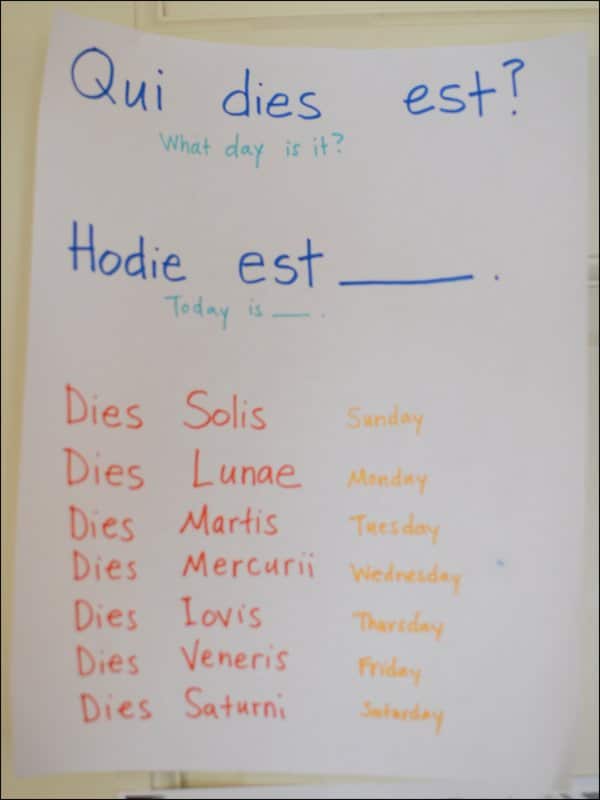 Qui dies est?
What day is it?
Hodie est ____.
Today is ___.
Dies Solis Sunday
Dies Lunae Monday
Dies Martis Tuesday
Dies Mercurii Wednesday
Dies Iovis Thursday
Dies Veneris Friday
Dies Saturni Saturday